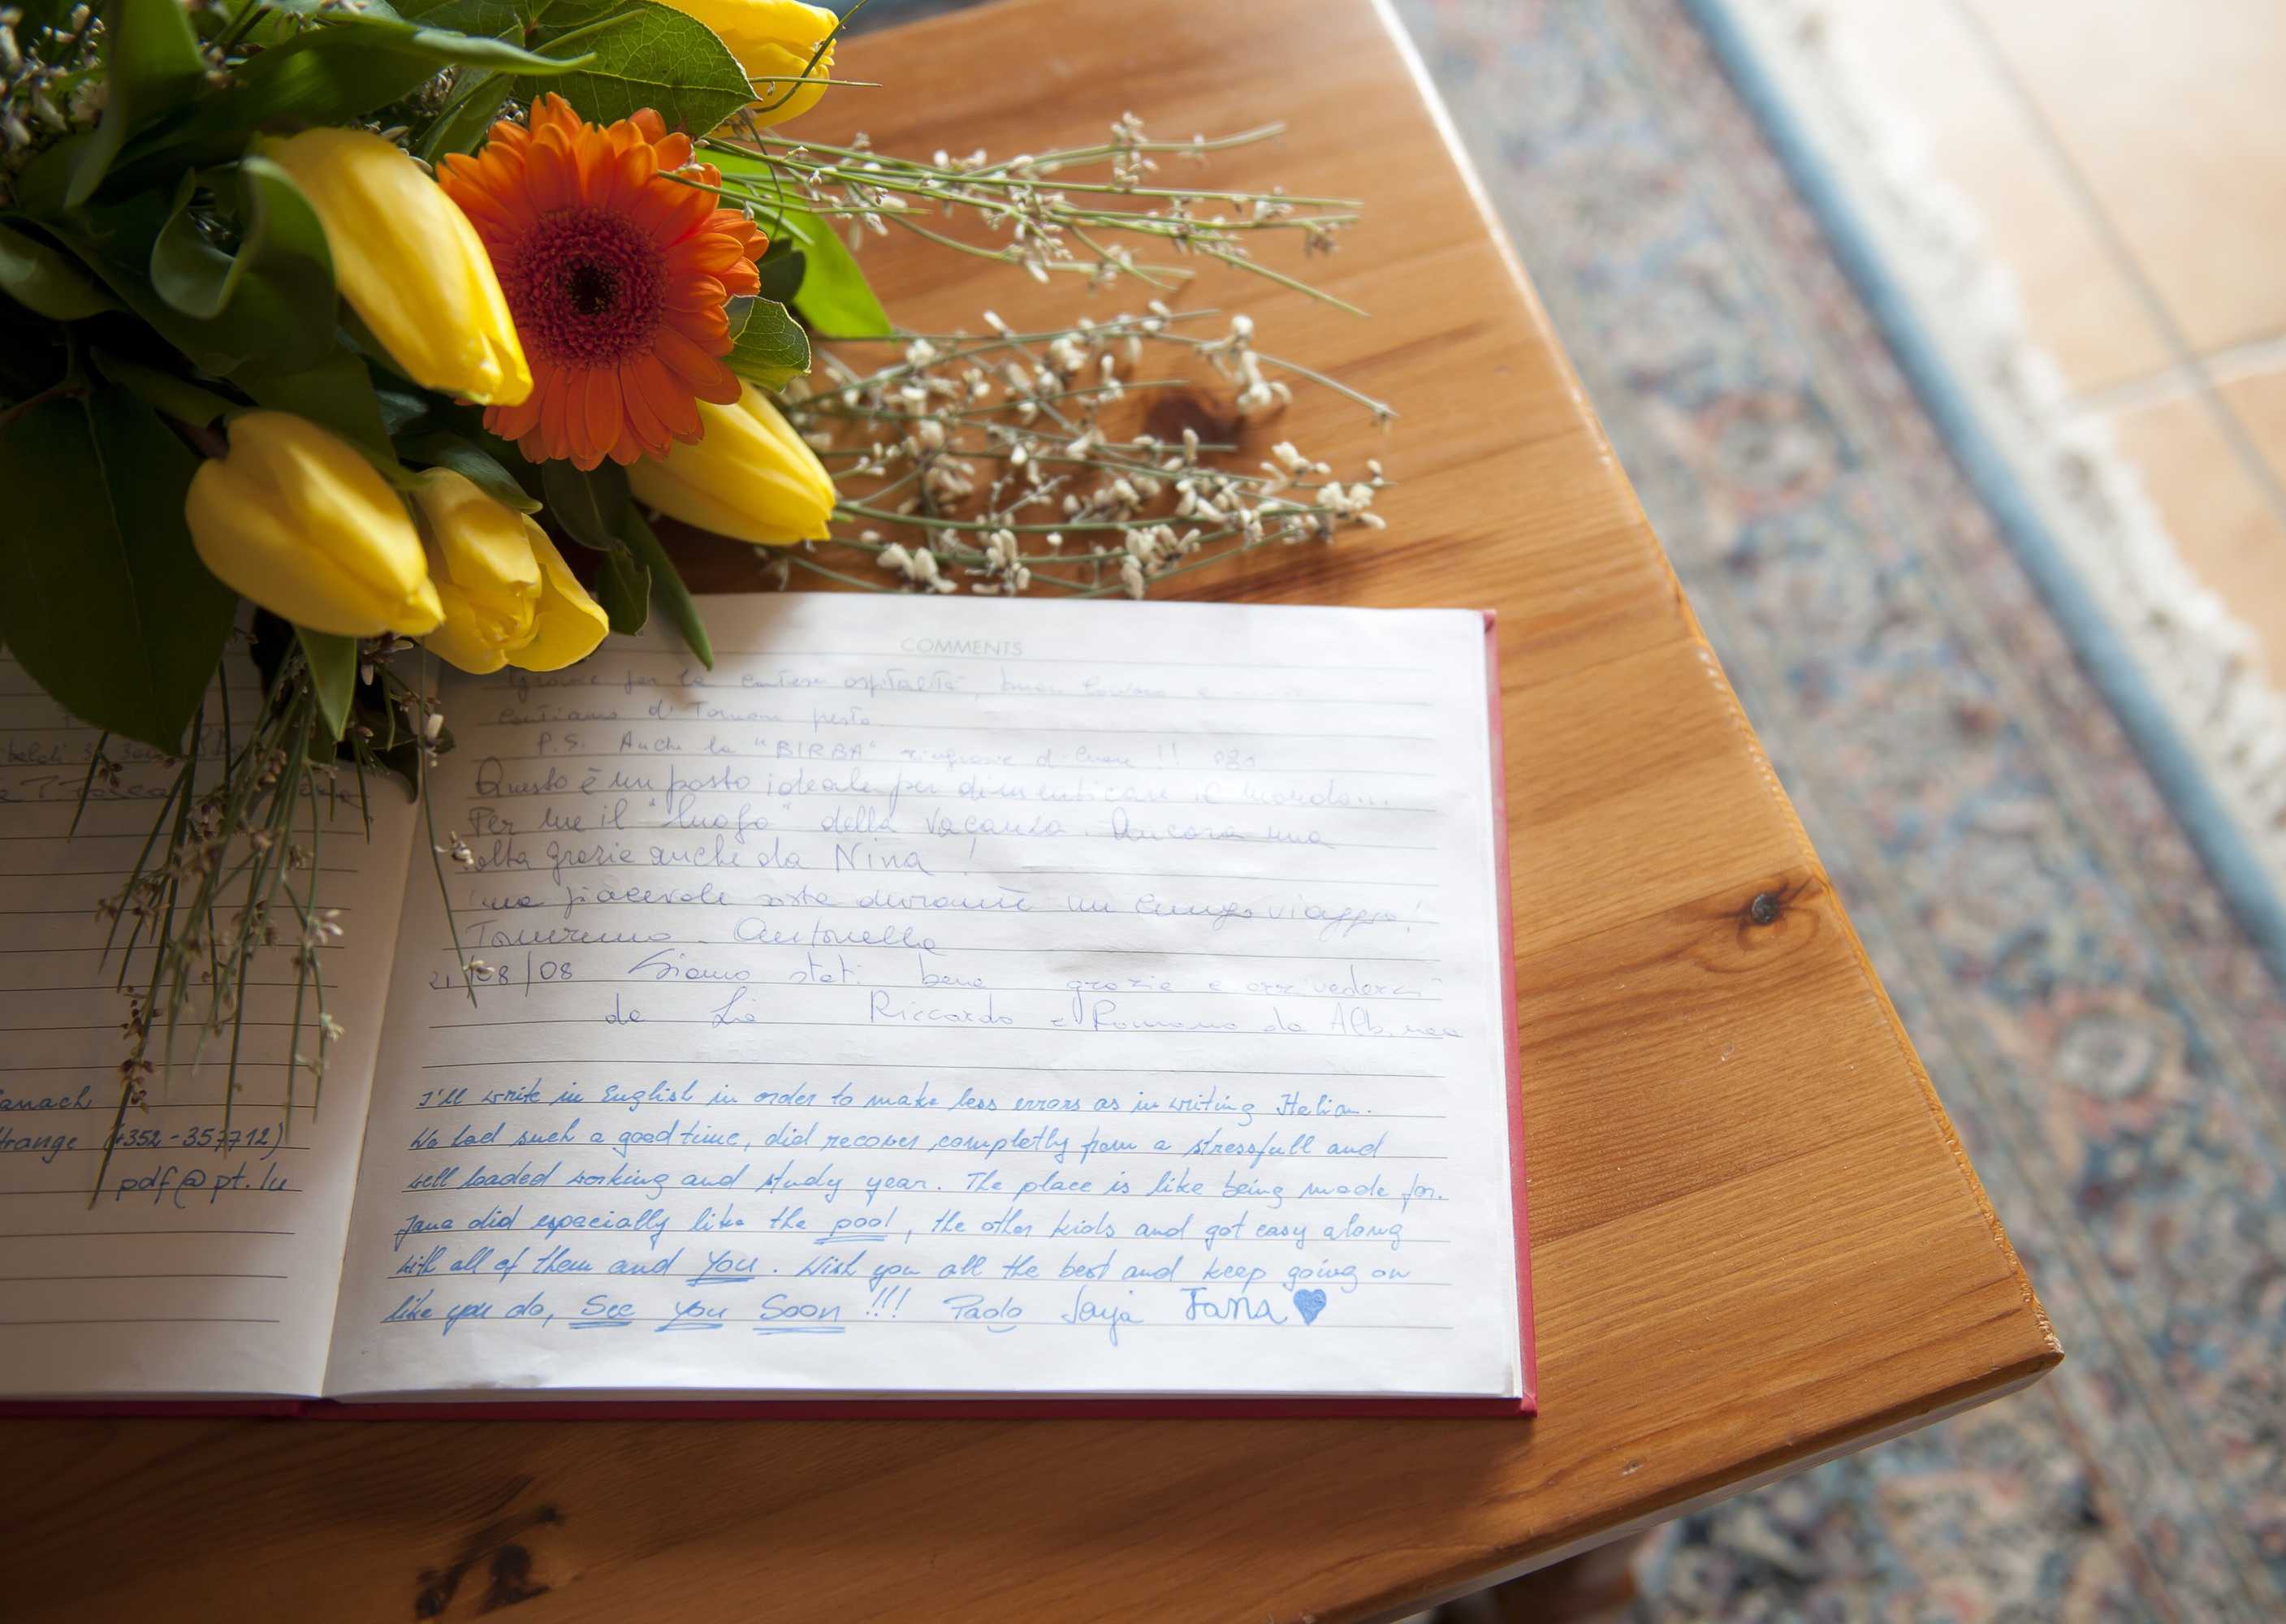 pdf@pt.lu
COMMENTS
per la ospitalità,
di
P.S. Anche la "BIRBA" ringrazia di cuore !!
Questo è un posto ideale per dimenticare il mondo...
Per me il "luogo" della vacanza. Ancora una
volta grazie anche da Nina !
una piacevole sosta durante un lungo viaggio!
Antonella
21/08/08 Siamo stati bene grazie e arrivederci
da Riccardo e Romano da
I'll write in English in order to make less errors as in writing Italian.
We had such a good time, did recover completly from a stressfull and
well loaded working and study year. The place is like being made for.
Jana did especially like the pool, the other kids and got easy along
with all of them and You. Wish you all the best and keep going on
like you do, See you Soon !!!! Paolo Jana